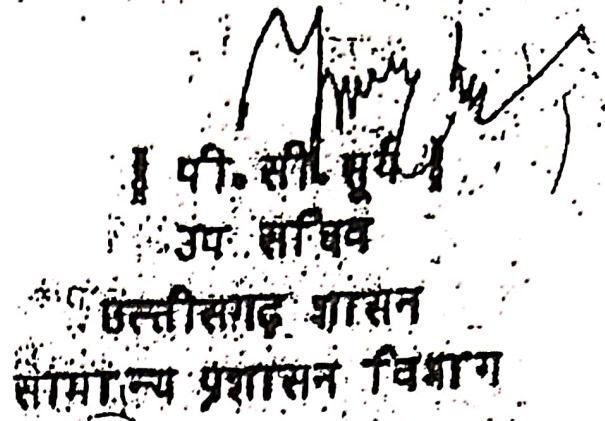 ॥ पी. सी. सूर्य ॥
उप सचिव
छत्तीसगढ़ शासन
सामान्य प्रशासन विभाग